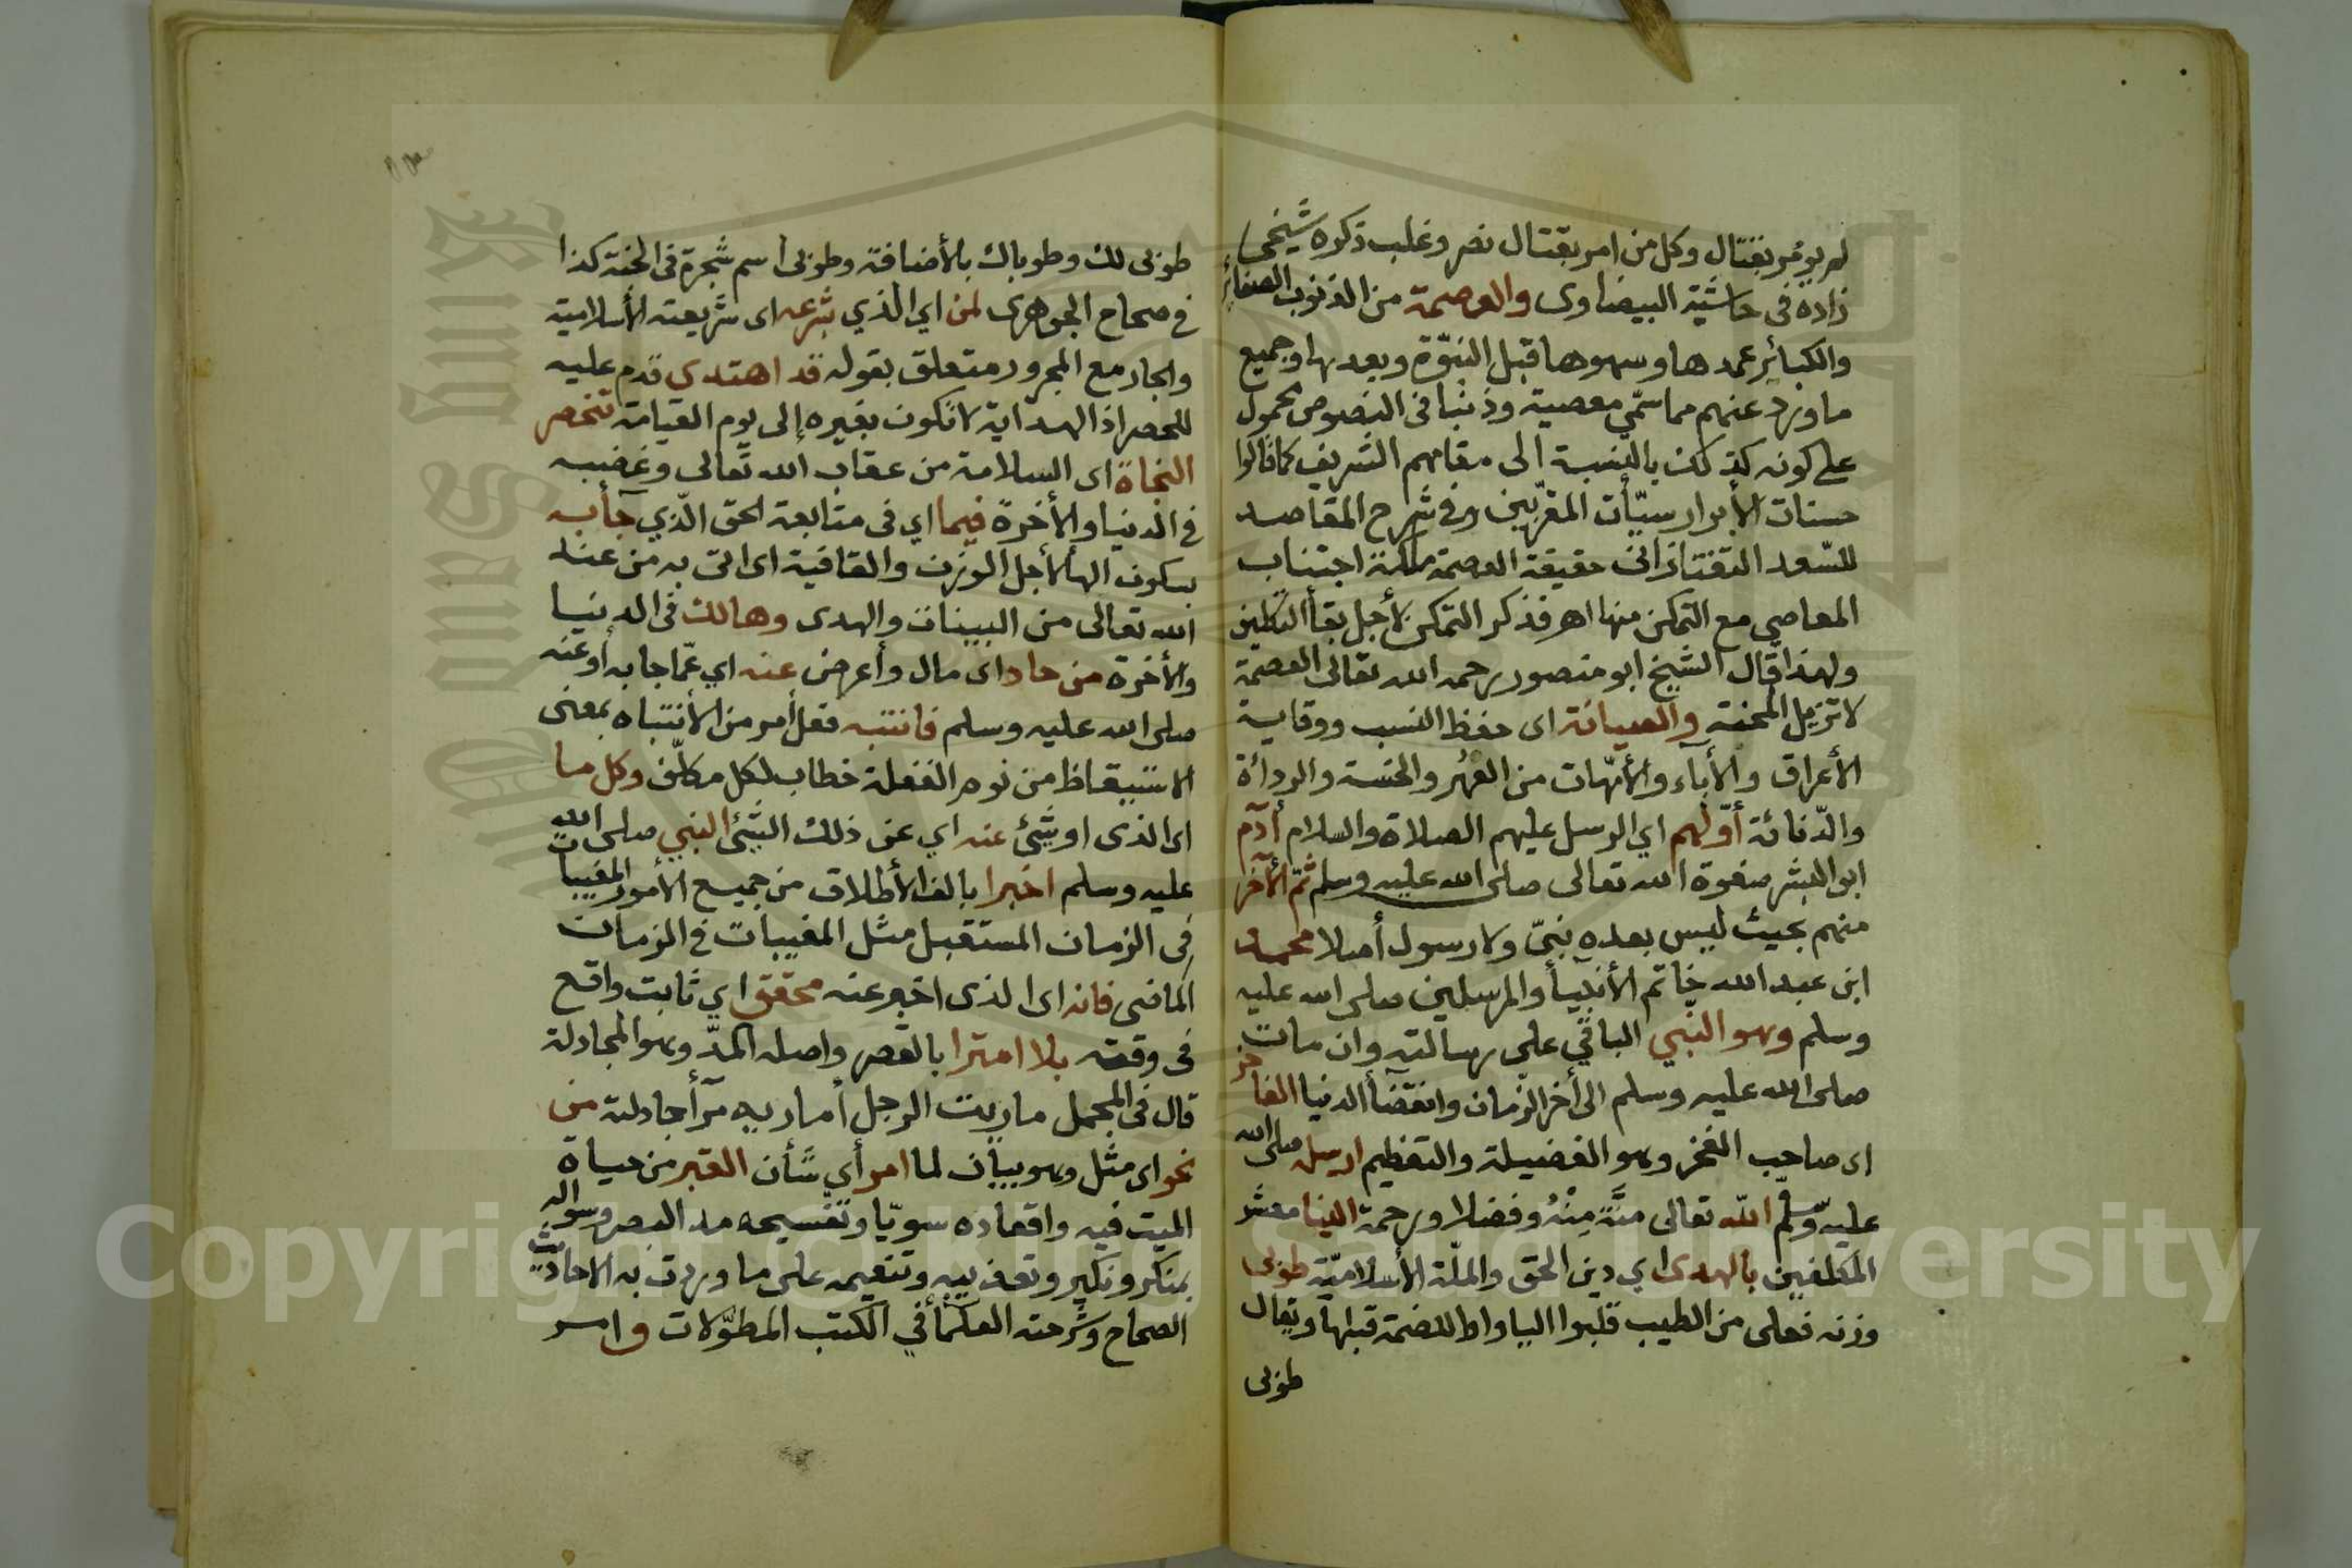 لم يؤمر بقتال وكل من امر بقتال نصر وغلب ذكره شيخي
زاده في حاشية البيضاوى والعصمة من الذنوب الصغائر
والكبائر عمدها وسهوها قبل النبوّة وبعدها وجميع
ما ورد عنهم مما سمّي معصية وذنبا في النصوص محمول
على كونه كذلك بالنسبة الى مقامهم الشريف كما قالوا
حسنات الأبرار سيّأت المقرّبين وفي شرح المقاصد
للسّعد التفتازانى حقيقة العصمة ملكة اجتناب
المعاصي مع التمكن منها اهـ فذكر التمكن لأجل بقأ التكليف
ولهذا قال الشيخ ابو منصور رحمه الله تعالى العصمة
لا تزيل المحنة والصيانة اى حفظ النسب ووقاية
الأعراق والأبآء والأمّهات من العُهر والخسة والردائة
والدّنائة أوّلهم اي الرسل عليهم الصلاة والسلام أدم
ابو البشر صفوة الله تعالى صلى الله عليه وسلم ثم الآخر
منهم بحيث ليس بعده نبيّ ولا رسول أصلا محمد
ابن عبد الله خاتم الأنبيأ والمرسلين صلى الله عليه
وسلم وهو النبي الباقي على رسالته وان مات
صلى الله عليه وسلم الى أخر الزمان وانقضأ الدنيا الفاخر
اى صاحب الفخر وهو الفضيلة والتعظيم ارسله صلى الله
عليه وسلم اللّه تعالى منَّةً مِنْهُ وفضلا ورحمة الينا معشر
المكلفين بالهدى اي دين الحق والملّة الأسلاميّة طوبى
وزنه فعلى من الطيب قلبوا اليا واوا للضمة قبلها ويقال
طوبى
طوبى لك وطوباك بالأضافة وطوبى اسم شجرة في الجنة كذا
في صحاح الجوهرى لمن اي الذي شرعه اى شريعته الأسلامية
والجار مع المجرور متعلق بقوله قد اهتدى قدم عليه
للحصر اذ الهداية لا تكون بغيره إلى يوم القيامة تنحصر
النجاة اى السلامة من عقاب الله تعالى وغضبه
في الدنيا والأخرة فيما اي في متابعة الحق الّذي جأبه
بسكون الهأ لأجل الوزن والقافية اى اتى به من عند
الله تعالى من البينات والهدى وهالك فى الدنيا
والأخرة من حاد اى مال وأعرض عنه اي عمّا جا به أو عنه
صلى الله عليه وسلم فانتبه فعل أمر من الأنتباه بمعنى
الاستيقاظ من نوم الغفلة خطاب لكل مكلّف وكل ما
اى الذى او شيئ عنه اي عن ذلك الشيئ النبي صلى الله
عليه وسلم اخبرا بالف الأطلاق من جميع الأمور المغيبات
فى الزمان المستقبل مثل المغيبات في الزمان
الماضى فانه اى الذى اخبر عنه محقق اي ثابت واقع
فى وقته بلا امترا بالقصر واصله المدّ وهو المجادلة
قال في المجمل ماريت الرجل أماريه مرآ جادلته من
نحو اى مثل وهو بيان لما امر أي شأن القبر من حياة
الميت فيه واقعاده سويّا وتفسيحه مد البصر وسواله
بمنكر ونكير وتعذيبه وتنعيمه على ما وردت به الاحاديث
الصحاح وشرحته العلمأ في الكتب المطوّلات وامر